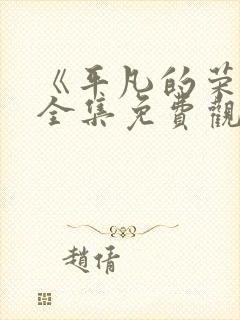 《平凡的荣
全集免費觀
趙倩